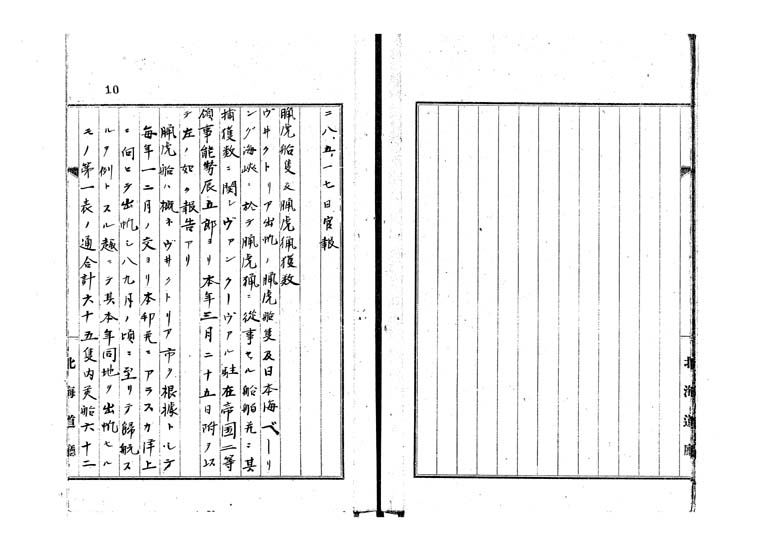 10
二八、五、一七日官報
臘虎船隻及臘虎猟獲数
ヴィクトリア出帆ノ臘虎船隻及日本海ベーリ
ング海峡ニ於テ臘虎猟ニ従事セル船舶並ニ其
捕獲数ニ関シヴァンクーヴァル駐在帝国二等
領事能勢辰五郎ヨリ本年三月二十五日附ヲ以
テ左ノ如ク報告アリ
臘虎船ハ概ネヴィクトリア市ヲ根據トシテ
毎年一二月ノ交ヨリ本邦並ニアラスカ洋上
ニ向ヒテ出帆シ八九月ノ頃ニ至リテ帰航ス
ルヲ例トスル趣ニテ其本年同地ヲ出帆セル
モノ第一表ノ通合計六十五隻内英船六十二
北海道廳
北海道廳